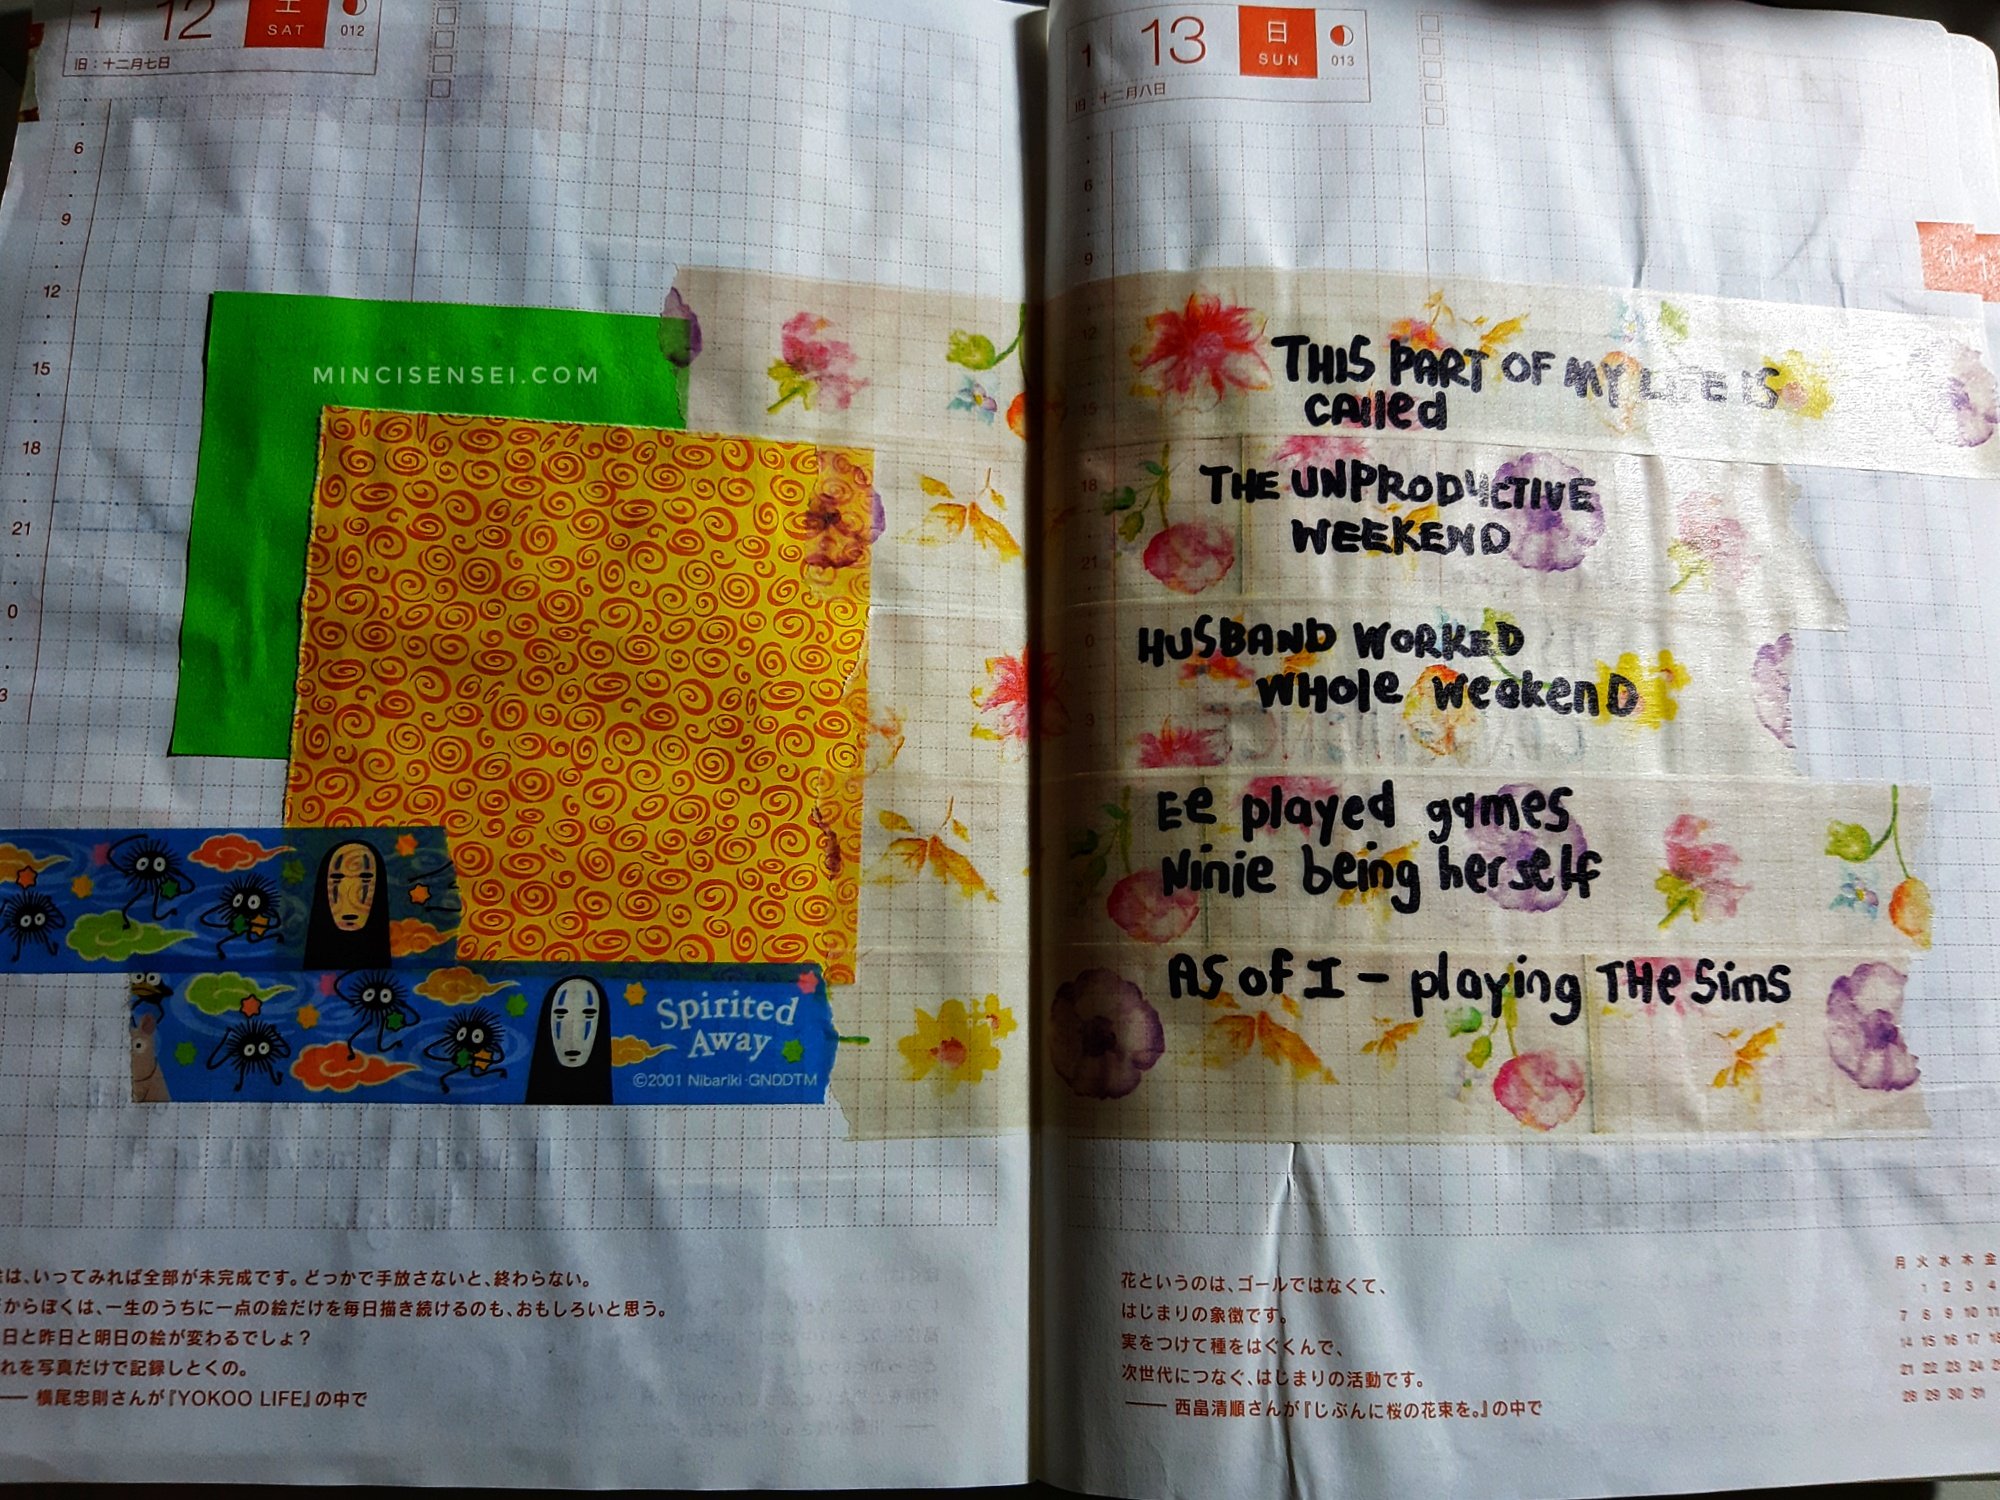 1 12 土 SAT 012
旧：十二月七日
6
9
12
15
18
21
0
3
MINCISENSEI.COM
Spirited
Away
©2001 Nibariki·GNDDTM
は、いってみれば全部が未完成です。どっかで手放さないと、終わらない。
からぼくは、一生のうちに一点の絵だけを毎日描き続けるのも、おもしろいと思う。
日と昨日と明日の絵が変わるでしょ？
れを写真だけで記録しとくの。
―― 横尾忠則さんが『YOKOO LIFE』の中で
1 13 日 SUN 013
旧：十二月八日
6
9
12
15
18
21
0
3
THIS PART OF MY LIFE IS
CAlled
THE UNPRODUCTIVE
WEEKEND
HUSBAND WORKED
WHole weekenD
Ee played games
Ninie being herself
AS of I – playing THe Sims
花というのは、ゴールではなくて、
はじまりの象徴です。
実をつけて種をはぐくんで、
次世代につなぐ、はじまりの活動です。
―― 西畠清順さんが『じぶんに桜の花束を。』の中で
月 火 水 木 金
1 2 3 4
7 8 9 10 11
14 15 16 17 18
21 22 23 24 25
28 29 30 31